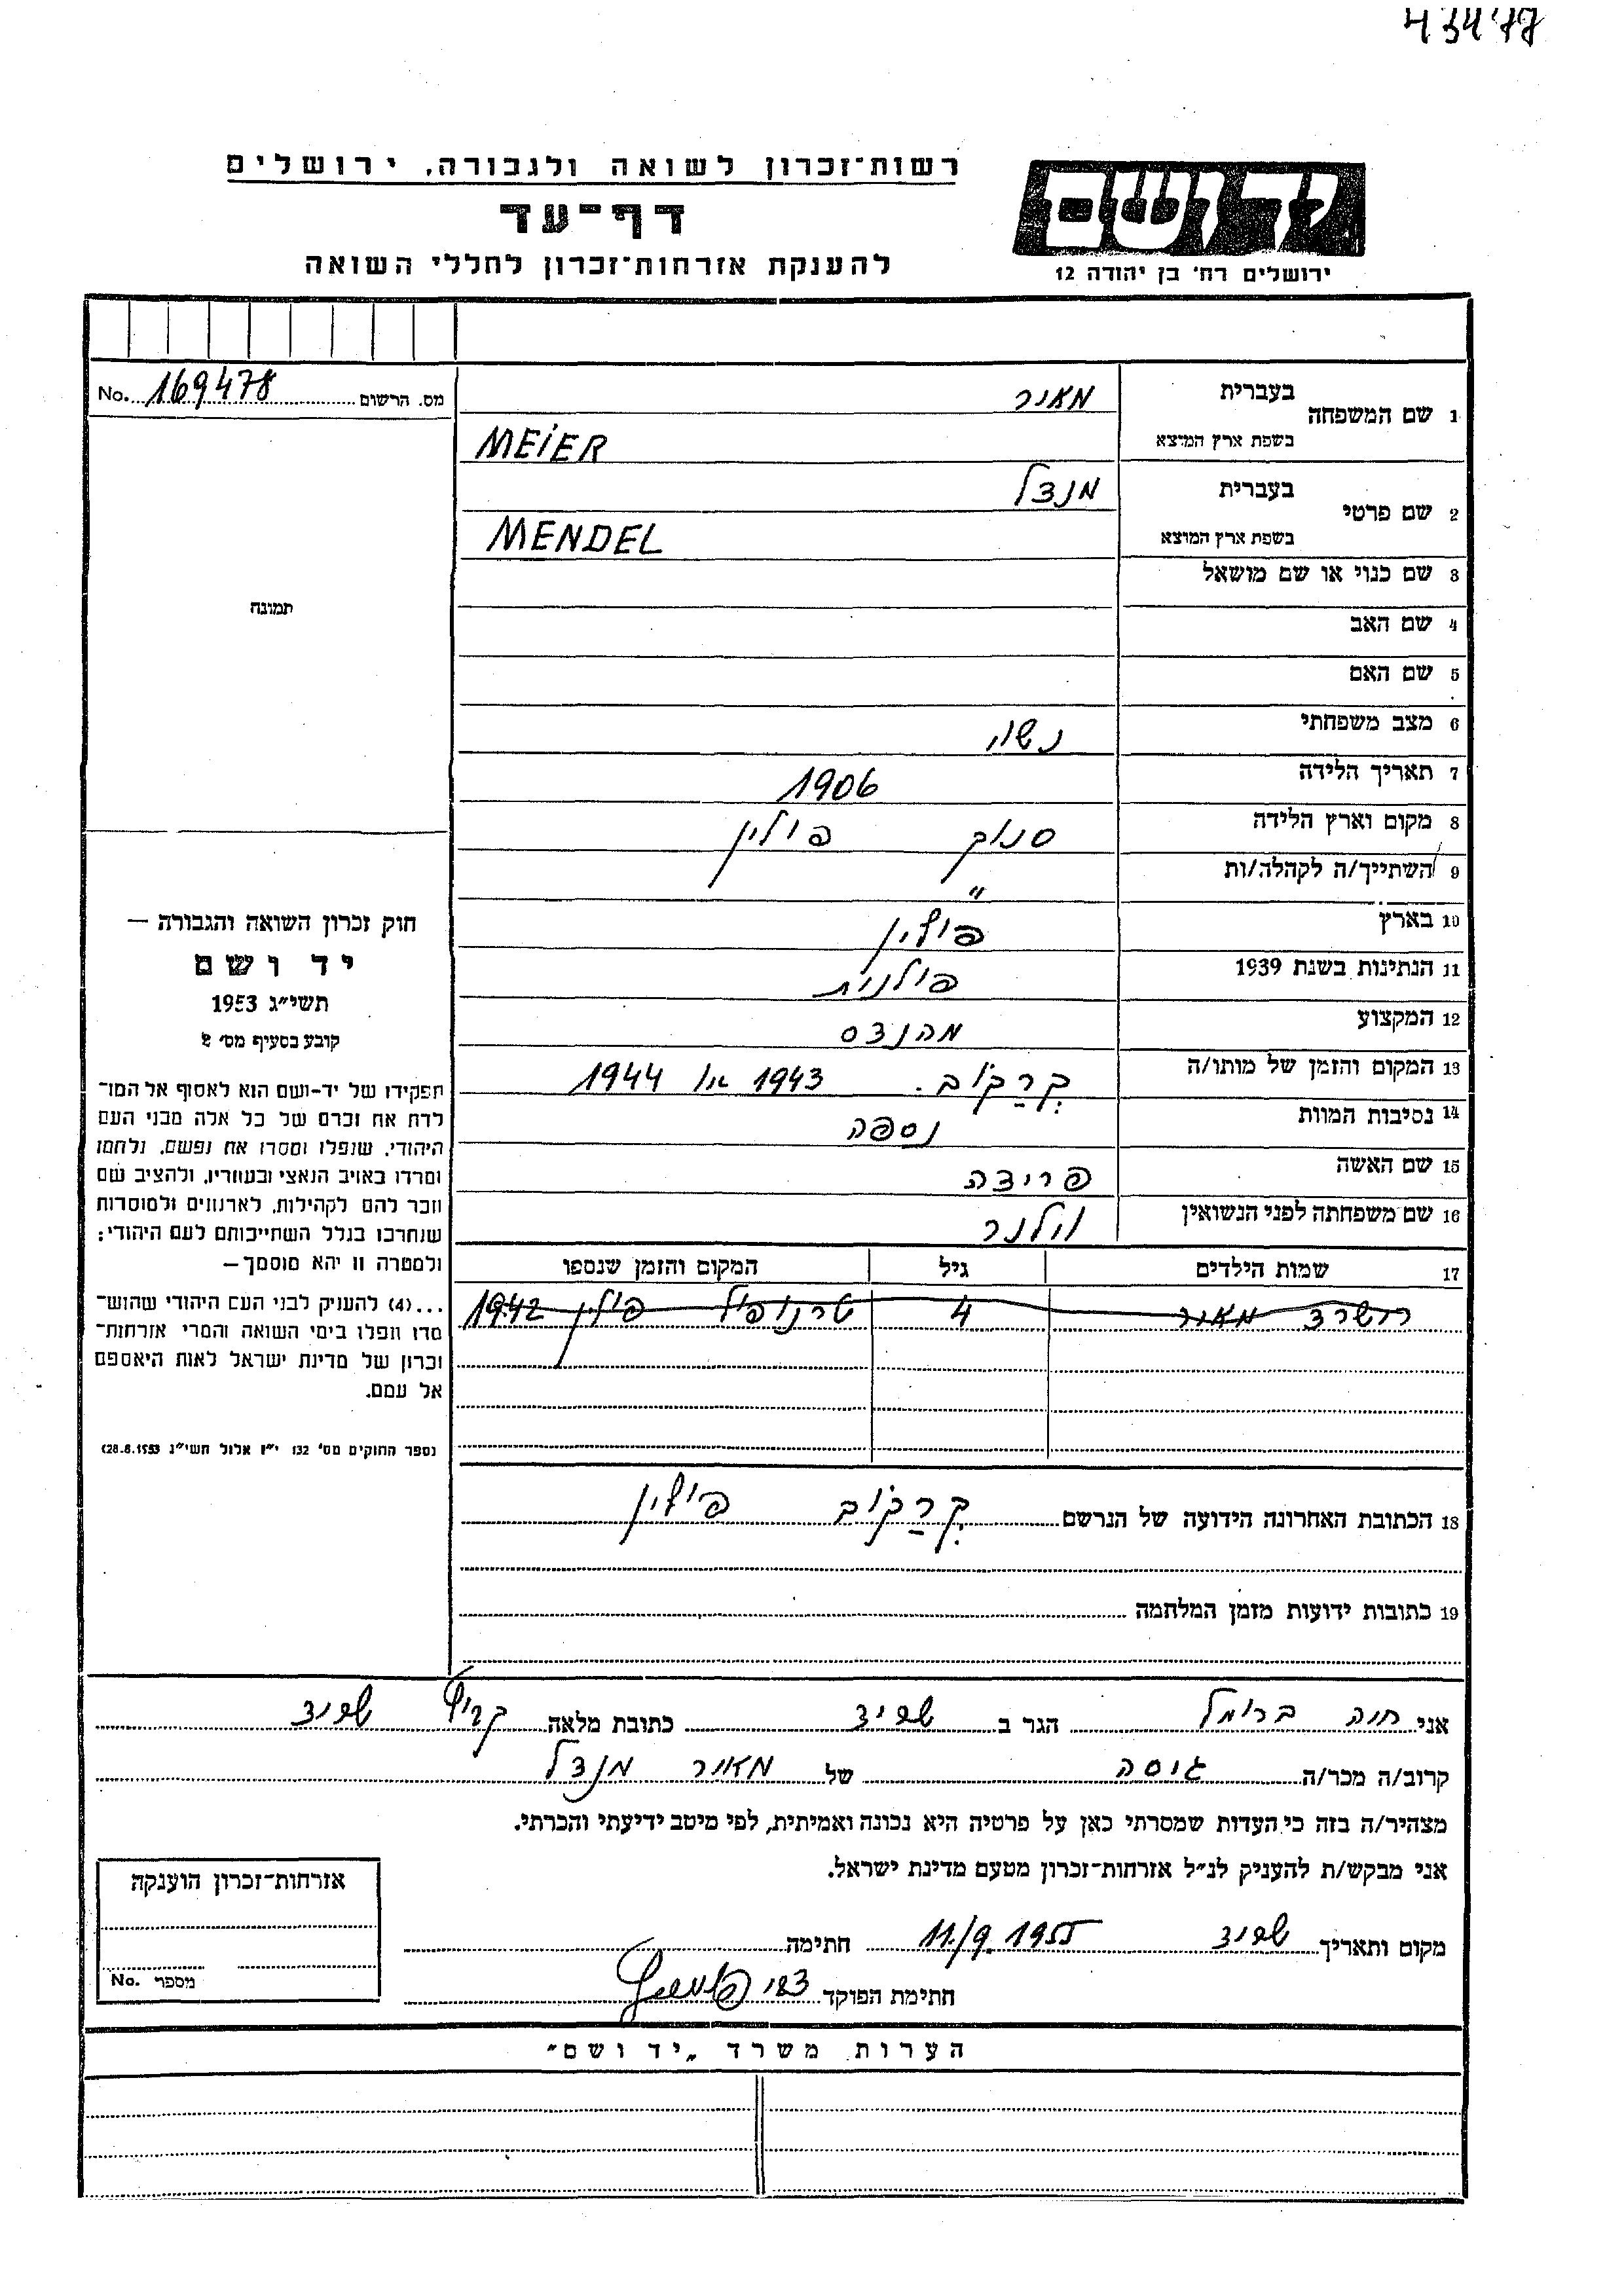 43477
רשות־זכרון לשואה ולגבורה, ירושלים
דף־עד
להענקת אזרחות־זכרון לחללי השואה
יד ושם
ירושלים רח' בן יהודה 12
מס. הרשום 169478 No.
1 שם המשפחה בעברית מאיר
בשפת ארץ המוצא MEIER
2 שם פרטי בעברית מנדל
בשפת ארץ המוצא MENDEL
3 שם כנוי או שם מושאל
4 שם האב
5 שם האם
6 מצב משפחתי נשוי
7 תאריך הלידה 1906
8 מקום וארץ הלידה סנוק פולין
9 השתייך/ה לקהלה/ות "
10 בארץ פולין
11 הנתינות בשנת 1939 פולנית
12 המקצוע מהנדס
13 המקום והזמן של מותו/ה קרקוב. 1943 או 1944
14 נסיבות המוות נספה
15 שם האשה פרידה
16 שם משפחתה לפני הנשואין וילנר
17 שמות הילדים גיל המקום והזמן שנספו
רישרד מאיר 4 טרנופול פולין 1942
18 הכתובת האחרונה הידועה של הנרשם קרקוב פולין
19 כתובות ידועות מזמן המלחמה
תמונה
חוק זכרון השואה והגבורה —
יד ושם
תשי"ג 1953
קובע בסעיף מס' 2
תפקידו של יד־ושם הוא לאסוף אל המו־
לדת את זכרם של כל אלה מבני העם
היהודי, שנפלו ומסרו את נפשם, נלחמו
ומרדו באויב הנאצי ובעוזריו, ולהציב שם
וזכר להם לקהילות, לארגונים ולמוסדות
שנחרבו בגלל השתייכותם לעם היהודי;
ולמטרה זו יהא מוסמך —
...(4) להעניק לבני העם היהודי שהוש־
מדו ונפלו בימי השואה והמרי אזרחות־
זכרון של מדינת ישראל לאות היאספם
אל עמם.
(ספר החוקים מס' 132 י"ז אלול תשי"ג 28.8.1953)
אני חוה ברומל הגר ב שפיד כתובת מלאה שפיד
קרוב/ה מכר/ה גיסה של מאיר מנדל
מצהיר/ה בזה כי העדות שמסרתי כאן על פרטיה היא נכונה ואמיתית, לפי מיטב ידיעתי והכרתי.
אני מבקש/ת להעניק לנ"ל אזרחות־זכרון מטעם מדינת ישראל.
מקום ותאריך שפיד 11/9.1955 חתימה
חתימת הפוקד צבי
אזרחות־זכרון הוענקה
מספר No.
הערות משרד „יד ושם"